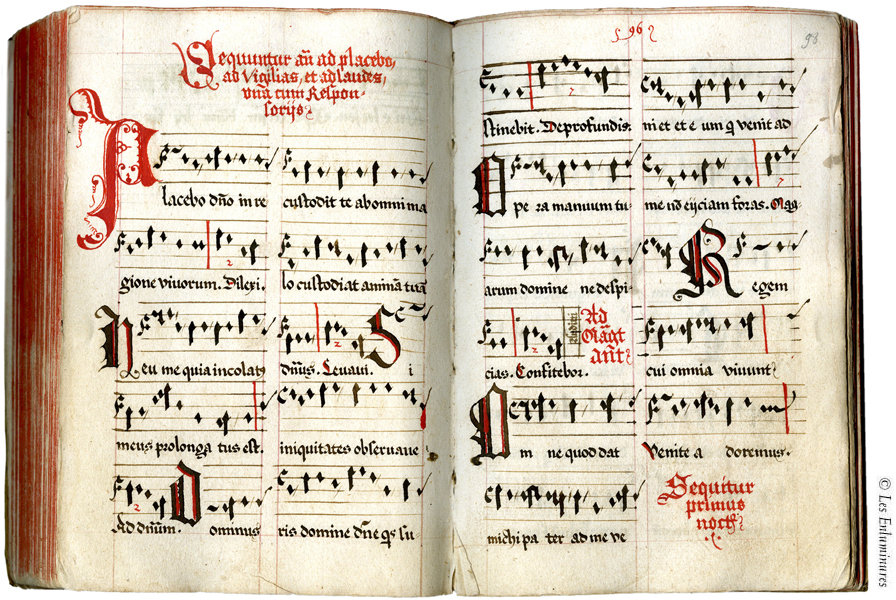 Sequuntur añ ad placebo,
ab Vigilias, et ad laudes,
vna cum Respon-
sorijs
Placebo dño in re
gione viuorum. Dilexi.
Heu me quia incolat
meus prolonga tus est.
Ad dñum. Dominus
custodit te ab omni ma
lo custodiat animã tuã
dñus. Leuaui. Si
iniquitates obseruaue
ris domine dñe qs su
96
98
stinebit. De profundis.
Ope ra manuum tu
arum domine ne despi
cias. Confitebor.
Ad
Magt
ant
Om ne quod dat
michi pa ter ad me ve
ni et et e um q venit ad
me nõ eijciam foras. Mag
Regem
cui omnia viuunt
Venite a doremus.
Sequitur
primus
noct
© Les Enluminures